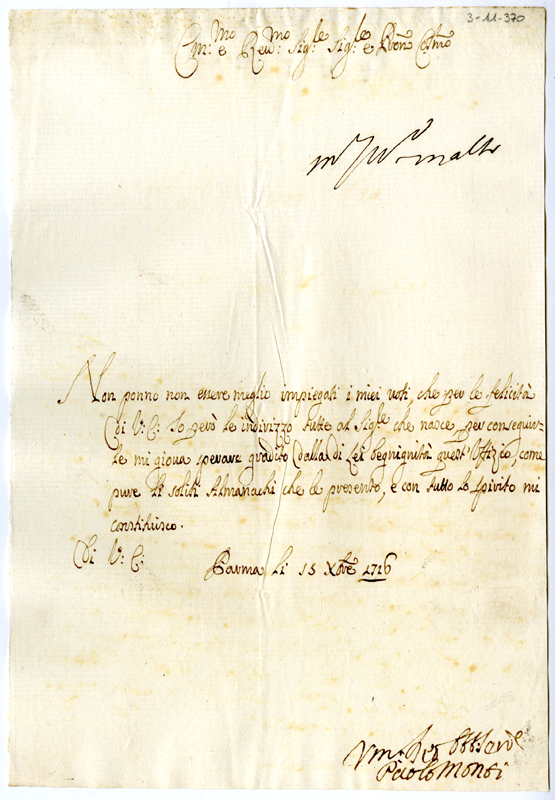 3-11-370
Em.mo e Rev.mo Sig.le Sig.le e Pren Col.mo
Non ponno non essere meglio impiegati i miei voti, che per le felicità
di V: E: Io però le indirizzo tutte al Sig.le che nasce, per conseguir-
le mi giova sperare gradito dalla di Lei begnignità quest'Offizio, come
pure li soliti Almanachi che le presento, e con tutto lo spirito mi
constituisco.
Di V: E:
Parma li 15 Xbre 1716
Paolo Monti